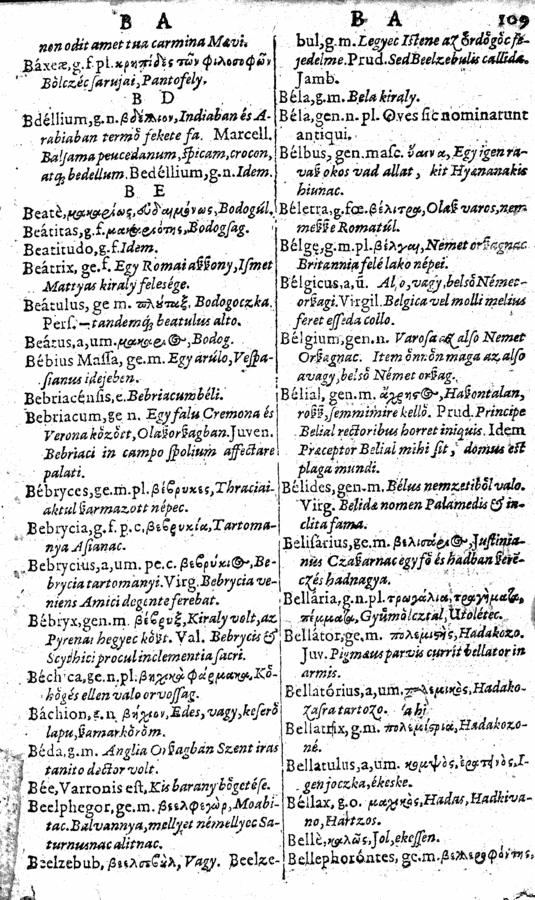 B A
B A 109
non odit amet tua carmina Mævi.
Báxeæ, g.f.pl. κρηπίδες τῶν φιλοσοφῶν
Bólczéc sarujai, Pantofely.
B D
Bdéllium, g.n. βδέλλιον, Indiaban és A-
rabiaban termő fekete fa. Marcell.
Balsama peucedanum, spicam, crocon,
atq; bedellum. Bedéllium, g.n. Idem.
B E
Beatè, μακαρίως, Bodogúl.
Beátitas, g.f. Bodogsag.
Beatitudo, g.f. Idem.
Beátrix, ge.f. Egy Romai aſſony, Ismet
Mattyas kiraly felesége.
Beátulus, ge m. Bodogoczka.
Pers. — tandemq; beatulus alto.
Beátus, a, um. Bodog.
Bébius Massa, ge.m. Egy arúlo, Vespa-
sianus idejeben.
Bebriacénsis, e. Bebriacumbéli.
Bebriacum, ge n. Egy falu Cremona és
Verona kőzőct, Olaſorſagban. Juven.
Bebriaci in campo spolium affectare
palati.
Bébryces, ge.m.pl. βέβρυκες, Thraciai-
aktul ſarmazott népec.
Bebrycia, g.f.p.c. βεβρυκία, Tartoma-
nya Asianac.
Bebrycius, a, um. pe.c. Be-
brycia tartomanyi. Virg. Bebrycia ve-
niens Amici de gente ferebat.
Bébryx, gen.m. βέβρυξ, Kiraly volt, az
Pyrenai hegyec kőzt. Val. Bebrycis &
Scythici procul inclementia sacri.
Béchica, ge.n.pl. βηχικὰ φάρμακα, Kő-
hőgés ellen valo orvossag.
Báchion, g.n. βήχιον, Edes, vagy, keserő
lapu, ſamarkőrőm.
Béda, g.m. Anglia Orſagban Szent iras
tanito doctor volt.
Bée, Varronis est, Kis barany bőgetése.
Beelphegor, ge.m. βεελφεγώρ, Moabi-
tac. Balvannya, mellyet némellyec Sa-
turnusnac alitnac.
Beelzebub, Vagy. Beelze-
bul, g.m. Legyec Istene az ordőgőc fe-
jedelme. Prud. Sed Beelzebulis callida.
Jamb.
Béla, g.m. Bela kiraly.
Béla, gen.n.pl. Oves sic nominatunt
antiqui.
Bélbus, gen.masc. ὕαινα, Egy igen ra-
vaſ okos vad allat, kit Hyænanakis
hiunac.
Béletra, g.fœ. βέλιτρα, Olaſ varos, nem
meſſe Romatúl.
Bélgę, g.m.pl. βέλγαι, Német orſagnac
Britannia felé lako népei.
Bélgicus, a, ũ. Also, vagy, belső Német-
orſagi. Virgil. Belgica vel molli melius
feret esseda collo.
Bélgium, gen.n. Varosa az also Nemet
Orſagnac. Item őnnőn maga az also
avagy, belső Német orſag.
Bélial, gen.m. Haſontalan,
roſſ, semmimire kellő. Prud. Principe
Belial rectoribus horret iniquis. Idem
Præceptor Belial mihi sit, domus est
plaga mundi.
Bélides, gen.m. Bélus nemzetiből valo.
Virg. Belidæ nomen Palamedis & in-
clita fama.
Belisarius, ge.m. Justinia-
nus Czaſarnac egy fő és hadban ſerē-
czés hadnagya.
Bellária, g.n.pl. τρωγάλια, τραγήματα,
πέμματα, Gyűmőlcztál, Utolétec.
Bellátor, ge.m. πολεμιστής, Hadakozo.
Juv. Pigmæus parvis currit bellator in
armis.
Bellatórius, a, um. πολεμικὸς, Hadako-
zasra tartozo.
Bellatrix, g.m. πολεμίστρια, Hadakozo-
né.
Bellatulus, a, um. κομψὸς, I-
gen joczka, ékeske.
Béllax, g.o. μαχικὸς, Hadas, Hadkiva-
no, Hartzos.
Bellè, καλῶς, Jol, ekessen.
Bellephoróntes, ge.m. βελλεροφόντης,